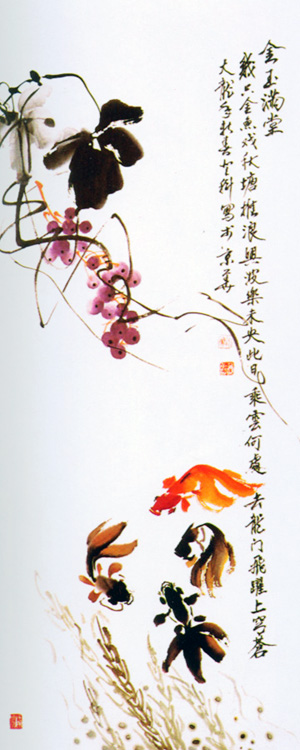 金玉滿堂
幾只金魚戏秋塘推浪興波樂未央此日乘雲何處去龍門飛躍上穹蒼
大龍年新春寫於京華